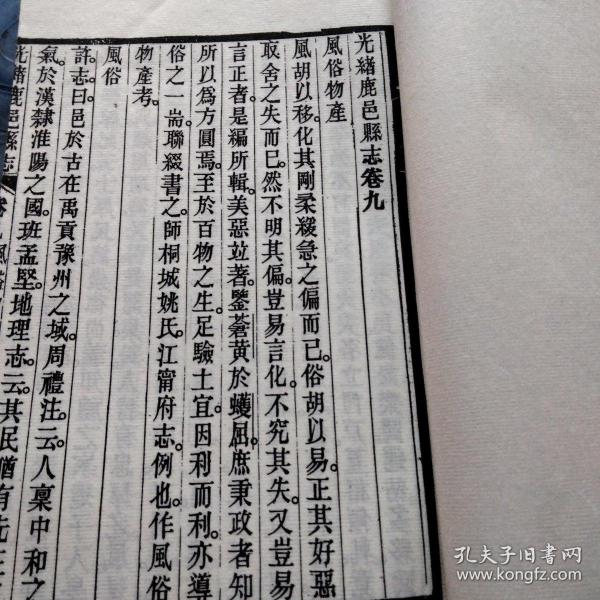 光緒鹿邑縣志卷九
風俗物產
風胡以移。化其剛柔緩急之偏而已。俗胡以易。正其好惡
取舍之失而已。然不明其偏。豈易言化。不究其失。又豈易
言正者是編所輯。美惡竝著。鑒蒼黃於蠖屈。庶秉政者知
所以為方圓焉。至於百物之生。足驗土宜。因利而利。亦導
俗之一耑。聯綴書之。師桐城姚氏。江甯府志。例也。作風俗
物產考。
風俗
許志曰邑於古在禹貢豫州之域。周禮注。云人稟中和之
氣。於漢隸淮陽之國。班孟堅。地理志。云。其民猶有先王
光緒鹿邑縣志 卷九 風俗
孔夫子旧书网
www.kongfz.com